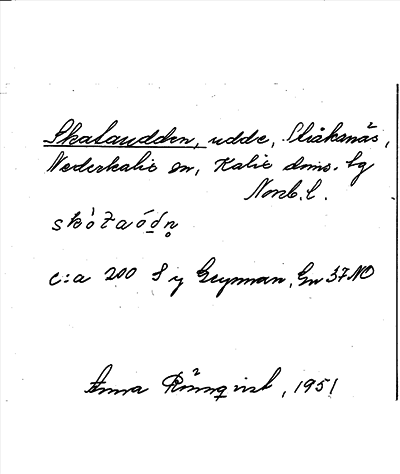 Skataudden, udde, Stråksnäs,
Nederkalix sn, Kalix doms. tg
Norrb. l.
c:a 200 S y Grynnan, Gn 37 NO
Anna Rönnqvist, 1951